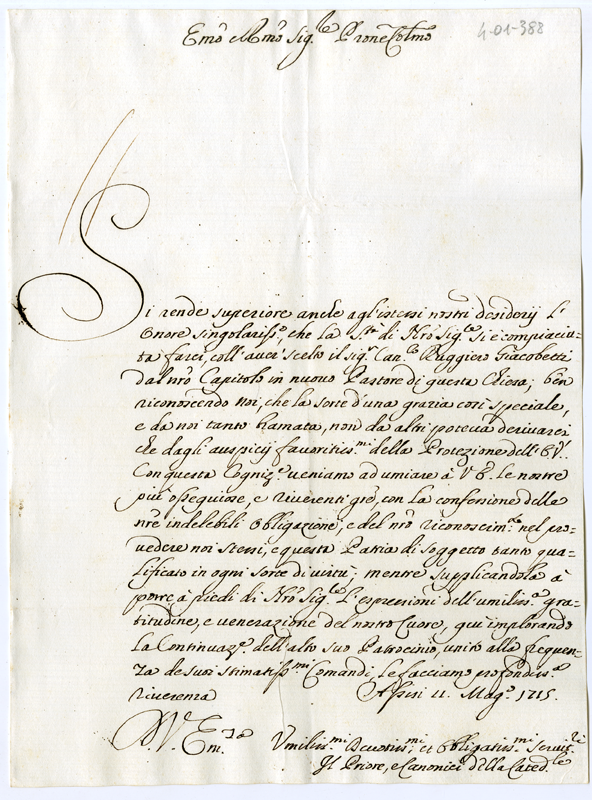 Emõ e Rmõ Sig.re Prone Colmo
4-01-388
Si rende superiore anche agl'istessi nostri desiderij l'
Onore singolariss.o, che la S.tà di Nrõ Sig.re si è compiaciu-
ta farci, coll'aver scelto il Sig.r Can.co Ruggiero Giacobetti
dal nrõ Capitolo in nuovo Pastore di questa Chiesa; ben
riconoscendo noi, che la sorte d'una grazia così speciale,
e da noi tanto bramata, non da altri poteva derivarci
che dagli auspicij favoritiss.mi della Protezione dell'E.V.
Con questa Cogniz.e veniamo ad umiliare à V.E. le nostre
più ossequiose, e riverenti grē, con la confessione delle
nrē indelebili obligazioni, e del nrõ riconoscim.to nel pro-
vedere noi stessi, e questa Patria di soggetto tanto qua-
lificato in ogni sorte di virtù; mentre supplicandola à
porre à piedi di Nrõ Sig.re l'espressioni dell'umiliss.a gra-
titudine, e venerazione del nostro Cuore, qui implorando
la Continuaz.e dell'alto suo Patrocinio, unito alla frequen-
za de suoi stimatiss.mi Comandi, le facciamo profondiss.a
riverenza Assisi 11. Mag.o 1715.
D V. Em.za Umiliss.mi Devotiss.mi et Obligatiss.mi Servit.ri
Il Priore, e Canonici della Cated.le